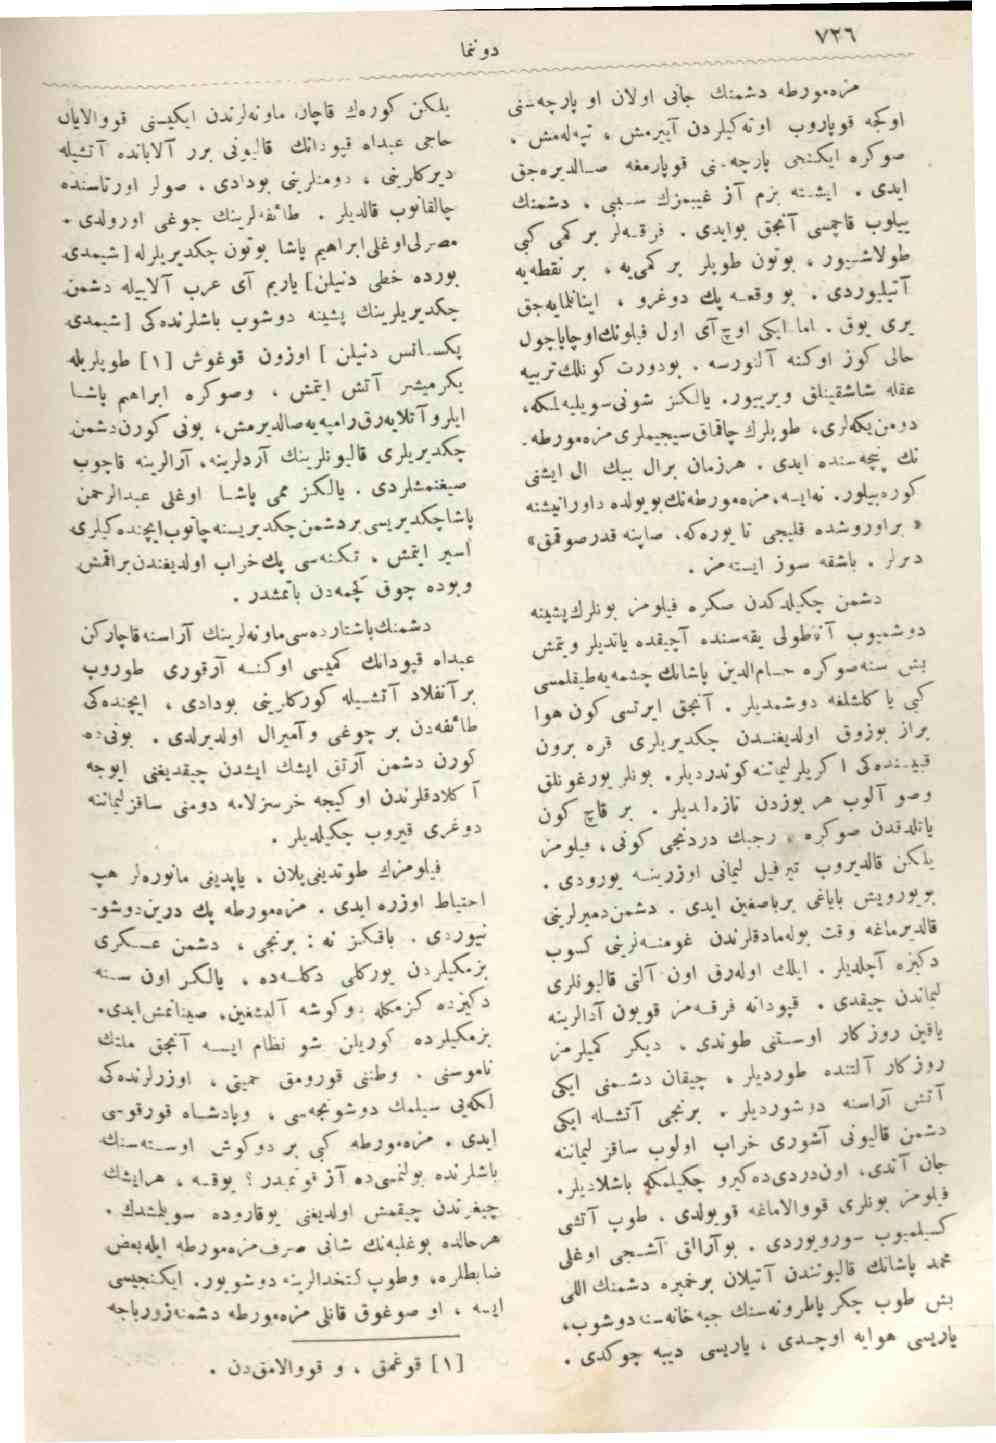 ٧٣٦
دونما
مزه‌مورطه دشمنك جانی اولان او پارچه‌سنی
اوكجه قوپاروب اوته‌كیلردن آییرمش ، تپه‌له‌مش .
صوكره ایكنجی پارچه‌نی قوپارمغه صالدیره‌جق
ایدی . ایشته بزم آز غیبمزك سببی ، دشمنك
ییلوب قاچمسی آنجق بوایدی . فرقه‌لر بر كمی كبی
طولاشییور ، بوتون طوپلر بر كمی‌یه ، بر نقطه‌یه
آتیلیوردی . بو وقعه پك دوغرو ، اینانلمایه‌جق
یری یوق . اما ایكی اوچ آی اول فیلونك اوچاپاچول
حالی كوز اوكنه آلنورسه . بودورت كونلك تربیه
عقله شاشقینلق ویرییور. یالكز شونی سویلیه‌لمكه،
دومن یكه‌لری، طوپلرك چاقماق سیجیملری مزه‌مورطه.
نك پنچه‌سنده ایدی . هرزمان برال بیك ال ایشنی
كوره‌بیلور. نه‌ایسه، مزه‌مورطه‌نك بویولده داورانیشنه
« براوروشده قلیجی تا یوره‌كه، صاپنه قدرصوقمق»
دیرلر . باشقه سوز ایسته‌مز .
دشمن چكیلدكدن صكره فیلومز بونلرك پشینه
دوشمیوب آناطولی یقه‌سنده آچیقده یاتدیلر ویتمش
بش سنه صوكره حسام‌الدین پاشانك چشمه‌یه طیقلمسی
كبی یا كلشلغه دوشمدیلر . آنجق ایرتسی كون هوا
براز بوزوق اولدیغندن چكدیریلری قره برون
قییسنده‌كی اكریلر لیمانه كوندردیلر. بونلر یورغونلق
وصو آلوب هر یوزدن تازه‌لدیلر . بر قاچ كون
یاتلدقدن صوكره ، رجبك دردنجی كونی ، فیلومز
یلكن قالدیروب تیرفیل لیمانی اوزرینه یورودی .
بویورویش بایاغی برباصقین ایدی . دشمن دمیرلرینی
قالدیرماغه وقت بوله‌مادقلرندن غومنه‌لرینی كسوب
دكیزه آچلدیلر . ایلك اوله‌رق اون آلتی قالیونلری
لیماندن چیقدی . قپودانه فرقه‌مز قویون آدالرینه
یاقین روزكار اوستنی طوتدی ، دیكر كمیلرمز
روزكار آلتنده طوردیلر ، چیقان دشمنی ایكی
آتش آراسنه دوشوردیلر . برنجی آتشله ایكی
دشمن قالیونی آشوری خراب اولوب ساقز لیماننه
جان آتدی، اون‌دردی‌ده كیرو چكیلمكه باشلادیلر.
فیلومز بونلری قووالاماغه قویولدی . طوپ آتشی
كسیلمیوب سورویوردی . بوآرالق آشجی اوغلی
محمد پاشانك قالیونندن آتیلان برخمبره دشمنك اللی
بش طوپ چكر پاطرونه‌سنك جبه‌خانه‌سنه دوشوب،
یاریسی هوایه اوچدی ، یاریسی دیبه چوكدی .
یلكن كوره‌ك قاچان ماونه‌لرندن ایكیسنی قووالایان
حاجی عبداه قپودانك قالیونی برر آلاباندە آتشیله
دیركلرینی ، دومنلرینی بودادی . صولر اورتاسنده
چالقانوب قالدیلر . طائفه‌لرینك چوغی اورولدی .
مصرلی‌اوغلی ابراهیم پاشا بوتون چكدیریلرله [ شیمدی
بورده خطی دنیلن ] یاریم آی عرب آلاییله دشمن
چكدیریلرینك پشینه دوشوب باشلرنده‌كی [ شیمدی
پكسانس دنیلن ] اوزون قوغوش [١] طوپلریله
یكرمیشر آتش ایتمش ، وصوكره ابراهیم پاشا
ایلرو آتلایه‌رق رامپه‌یه صالدیرمش، بونی كورن دشمن
چكدیریلری قالیونلرینك آردلرینه، آرالرینه قاچوب
صیغنمشلردی . یالكز ممی پاشا اوغلی عبدالرحمن
پاشا چكدیریسی بر دشمن چكدیریسنه چاتوب ایچنده كیلری
اسیر ایتمش ، تكنه‌سی پك خراب اولدیغندن براقمش
وبوده چوق كچمه‌دن باتمشدر .
دشمنك باشتارده‌سی ماونه‌لرینك آراسنه قاچاركن
عبداه قپودانك كمیسی اوكنه آرقوری طوروب
برآنفلاد آتشیله كوركلرینی بودادی ، ایچنده‌كی
طائفه‌دن بر چوغی وآمیرال اولدیرلدی . بونی‌ده
كورن دشمن آرتق ایشك ایشدن چیقدیغنی ایوجه
آ كلادقلرندن او كیجه خرسزلامه دومنی ساقز لیماننه
دوغری قیروب چكیلدیلر .
فیلومزك طوتدیغی پلان ، یاپدیغی مانوره‌لر هپ
احتیاط اوزره ایدی . مزه‌مورطه پك درین دوشو-
نیوردی . باقكز نه : برنجی ، دشمن عسكری
بزمكیلردن یوركلی دكلسه‌ده ، یالكز اون سنه
دكیزده كزمكله دوكوشه آلیشغین، صینانمش ایدی.
بزمكیلرده كوریلن شو نظام ایسه آنجق ملتك
ناموسنی . وطننی قورومق حمیتی ، اوزرلرنده‌كی
لكه‌یی سیلمك دوشونجه‌سی ، وپادشاه قورقوسی
ایدی . مزه‌مورطه كبی بر دوكوش اوسته‌سنك
باشلرنده بولنمسی‌ده آز قوتمیدر ؟ یوقسه ، هرایشك
چیغرندن چیقمش اولدیغنی یوقاروده سویلمشدك .
هرحالده بوغلبه‌نك شانی صرف مزه‌مورطه ایله بعض
ضابطلره، وطوپ كتخدالرینه دوشویور. ایكنجیسی
ایسه ، او صوغوق قانلی مزه‌مورطه دشمنه زورباجه
[١] قوغمق ، و قووالامق‌دن .